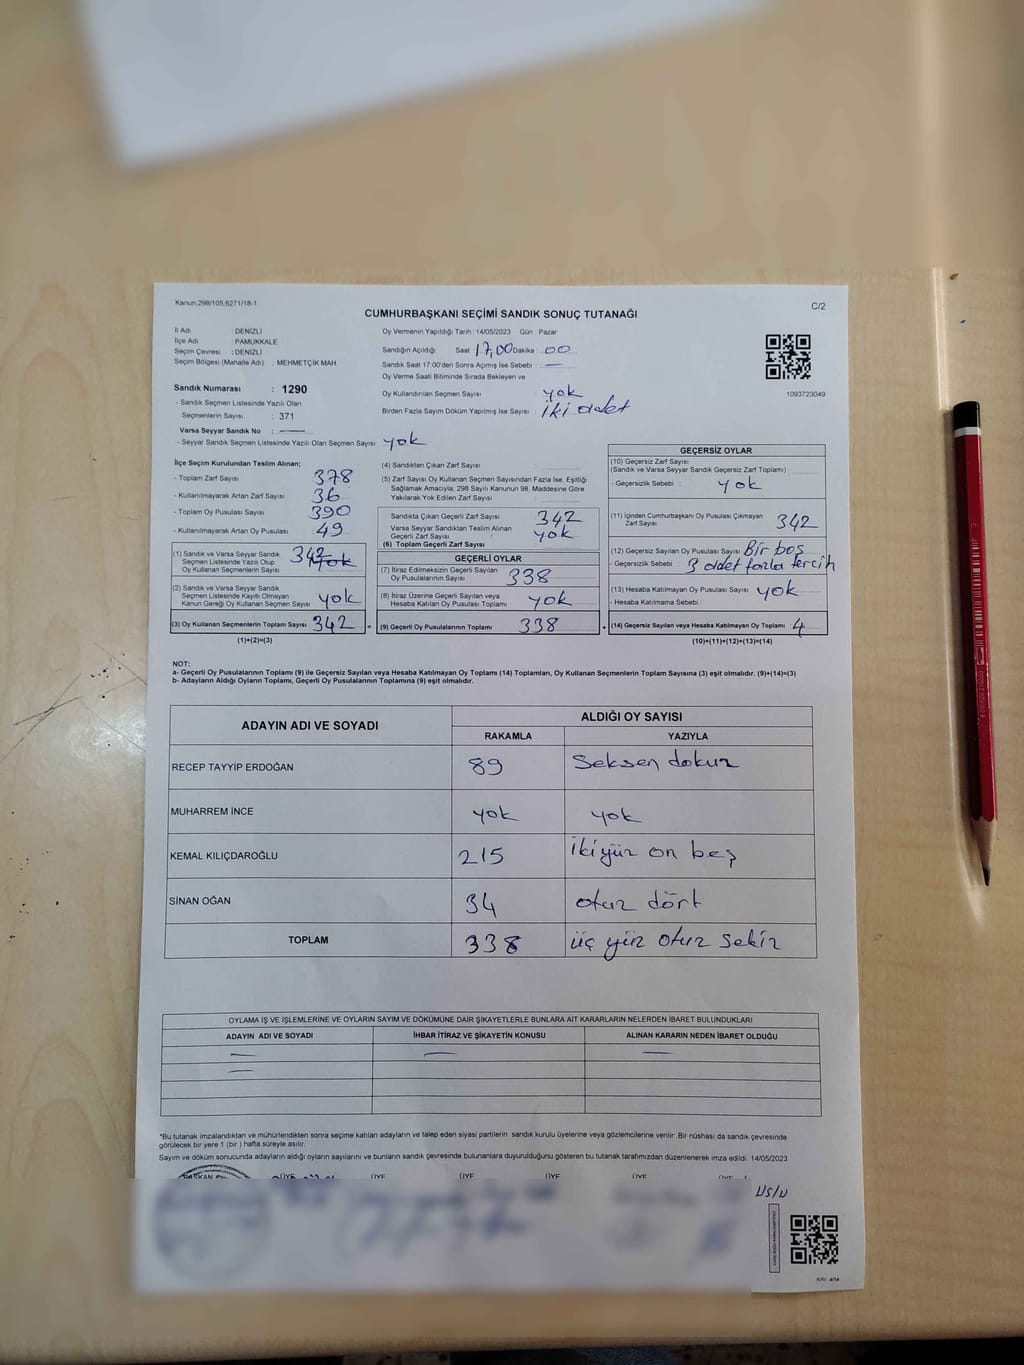 Kanun:298/105,6271/18-1
C/2
CUMHURBAŞKANI SEÇİMİ SANDIK SONUÇ TUTANAĞI
İl Adı : DENİZLİ
İlçe Adı : PAMUKKALE
Seçim Çevresi : DENİZLİ
Seçim Bölgesi (Mahalle Adı) : MEHMETÇİK MAH.
Sandık Numarası : 1290
- Sandık Seçmen Listesinde Yazılı Olan
Seçmenlerin Sayısı : 371
Varsa Seyyar Sandık No : —
- Seyyar Sandık Seçmen Listesinde Yazılı Olan Seçmen Sayısı: yok
Oy Vermenin Yapıldığı Tarih : 14/05/2023 Gün : Pazar
Sandığın Açıldığı Saat 17,00 Dakika : 00
Sandık Saat 17:00'den Sonra Açılmış İse Sebebi : —
Oy Verme Saati Bitiminde Sırada Bekleyen ve
Oy Kullandırılan Seçmen Sayısı : yok
Birden Fazla Sayım Döküm Yapılmış İse Sayısı : iki adet
1093723049
İlçe Seçim Kurulundan Teslim Alınan;
- Toplam Zarf Sayısı 378
- Kullanılmayarak Artan Zarf Sayısı 36
- Toplam Oy Pusulası Sayısı 390
- Kullanılmayarak Artan Oy Pusulası 49
(1) Sandık ve Varsa Seyyar Sandık
Seçmen Listesinde Yazılı Olup
Oy Kullanan Seçmenlerin Sayısı 342 yok
(2) Sandık ve Varsa Seyyar Sandık
Seçmen Listesinde Kayıtlı Olmayan
Kanun Gereği Oy Kullanan Seçmen Sayısı yok
(3) Oy Kullanan Seçmenlerin Toplam Sayısı 342 =
(1)+(2)=(3)
(4) Sandıktan Çıkan Zarf Sayısı :
(5) Zarf Sayısı Oy Kullanan Seçmen Sayısından Fazla İse, Eşitliği
Sağlamak Amacıyla; 298 Sayılı Kanunun 98. Maddesine Göre
Yakılarak Yok Edilen Zarf Sayısı :
Sandıkta Çıkan Geçerli Zarf Sayısı : 342
Varsa Seyyar Sandıktan Teslim Alınan
Geçerli Zarf Sayısı : yok
(6) Toplam Geçerli Zarf Sayısı
GEÇERLİ OYLAR
(7) İtiraz Edilmeksizin Geçerli Sayılan
Oy Pusulalarının Sayısı : 338
(8) İtiraz Üzerine Geçerli Sayılan veya
Hesaba Katılan Oy Pusulası Toplamı : yok
(9) Geçerli Oy Pusulalarının Toplamı 338 +
GEÇERSİZ OYLAR
(10) Geçersiz Zarf Sayısı
(Sandık ve Varsa Seyyar Sandık Geçersiz Zarf Toplamı) :
- Geçersizlik Sebebi : yok
(11) İçinden Cumhurbaşkanı Oy Pusulası Çıkmayan
Zarf Sayısı : 342
(12) Geçersiz Sayılan Oy Pusulası Sayısı : Bir boş
- Geçersizlik Sebebi : 3 adet fazla tercih
(13) Hesaba Katılmayan Oy Pusulası Sayısı : yok
- Hesaba Katılmama Sebebi :
(14) Geçersiz Sayılan veya Hesaba Katılmayan Oy Toplamı 4
(10)+(11)+(12)+(13)=(14)
NOT:
a- Geçerli Oy Pusulalarının Toplamı (9) ile Geçersiz Sayılan veya Hesaba Katılmayan Oy Toplamı (14) Toplamları, Oy Kullanan Seçmenlerin Toplam Sayısına (3) eşit olmalıdır. (9)+(14)=(3)
b- Adayların Aldığı Oyların Toplamı, Geçerli Oy Pusulalarının Toplamına (9) eşit olmalıdır.
ADAYIN ADI VE SOYADI ALDIĞI OY SAYISI
RAKAMLA YAZIYLA
RECEP TAYYİP ERDOĞAN 89 Seksen dokuz
MUHARREM İNCE yok yok
KEMAL KILIÇDAROĞLU 215 ikiyüz on beş
SİNAN OĞAN 34 otuz dört
TOPLAM 338 üç yüz otuz sekiz
OYLAMA İŞ VE İŞLEMLERİNE VE OYLARIN SAYIM VE DÖKÜMÜNE DAİR ŞİKAYETLERLE BUNLARA AİT KARARLARIN NELERDEN İBARET BULUNDUKLARI
ADAYIN ADI VE SOYADI İHBAR İTİRAZ VE ŞİKAYETİN KONUSU ALINAN KARARIN NEDEN İBARET OLDUĞU
— — —
—
*Bu tutanak imzalandıktan ve mühürlendikten sonra seçime katılan adayların ve talep eden siyasi partilerin sandık kurulu üyelerine veya gözlemcilerine verilir. Bir nüshası da sandık çevresinde
görülecek bir yere 1 (bir ) hafta süreyle asılır.
Sayım ve döküm sonucunda adayların aldığı oyların sayılarını ve bunların sandık çevresinde bulunanlara duyurulduğunu gösteren bu tutanak tarafımızdan düzenlenerek imza edildi. 14/05/2023
BAŞKAN ÜYE ÜYE ÜYE ÜYE ÜYE ÜYE